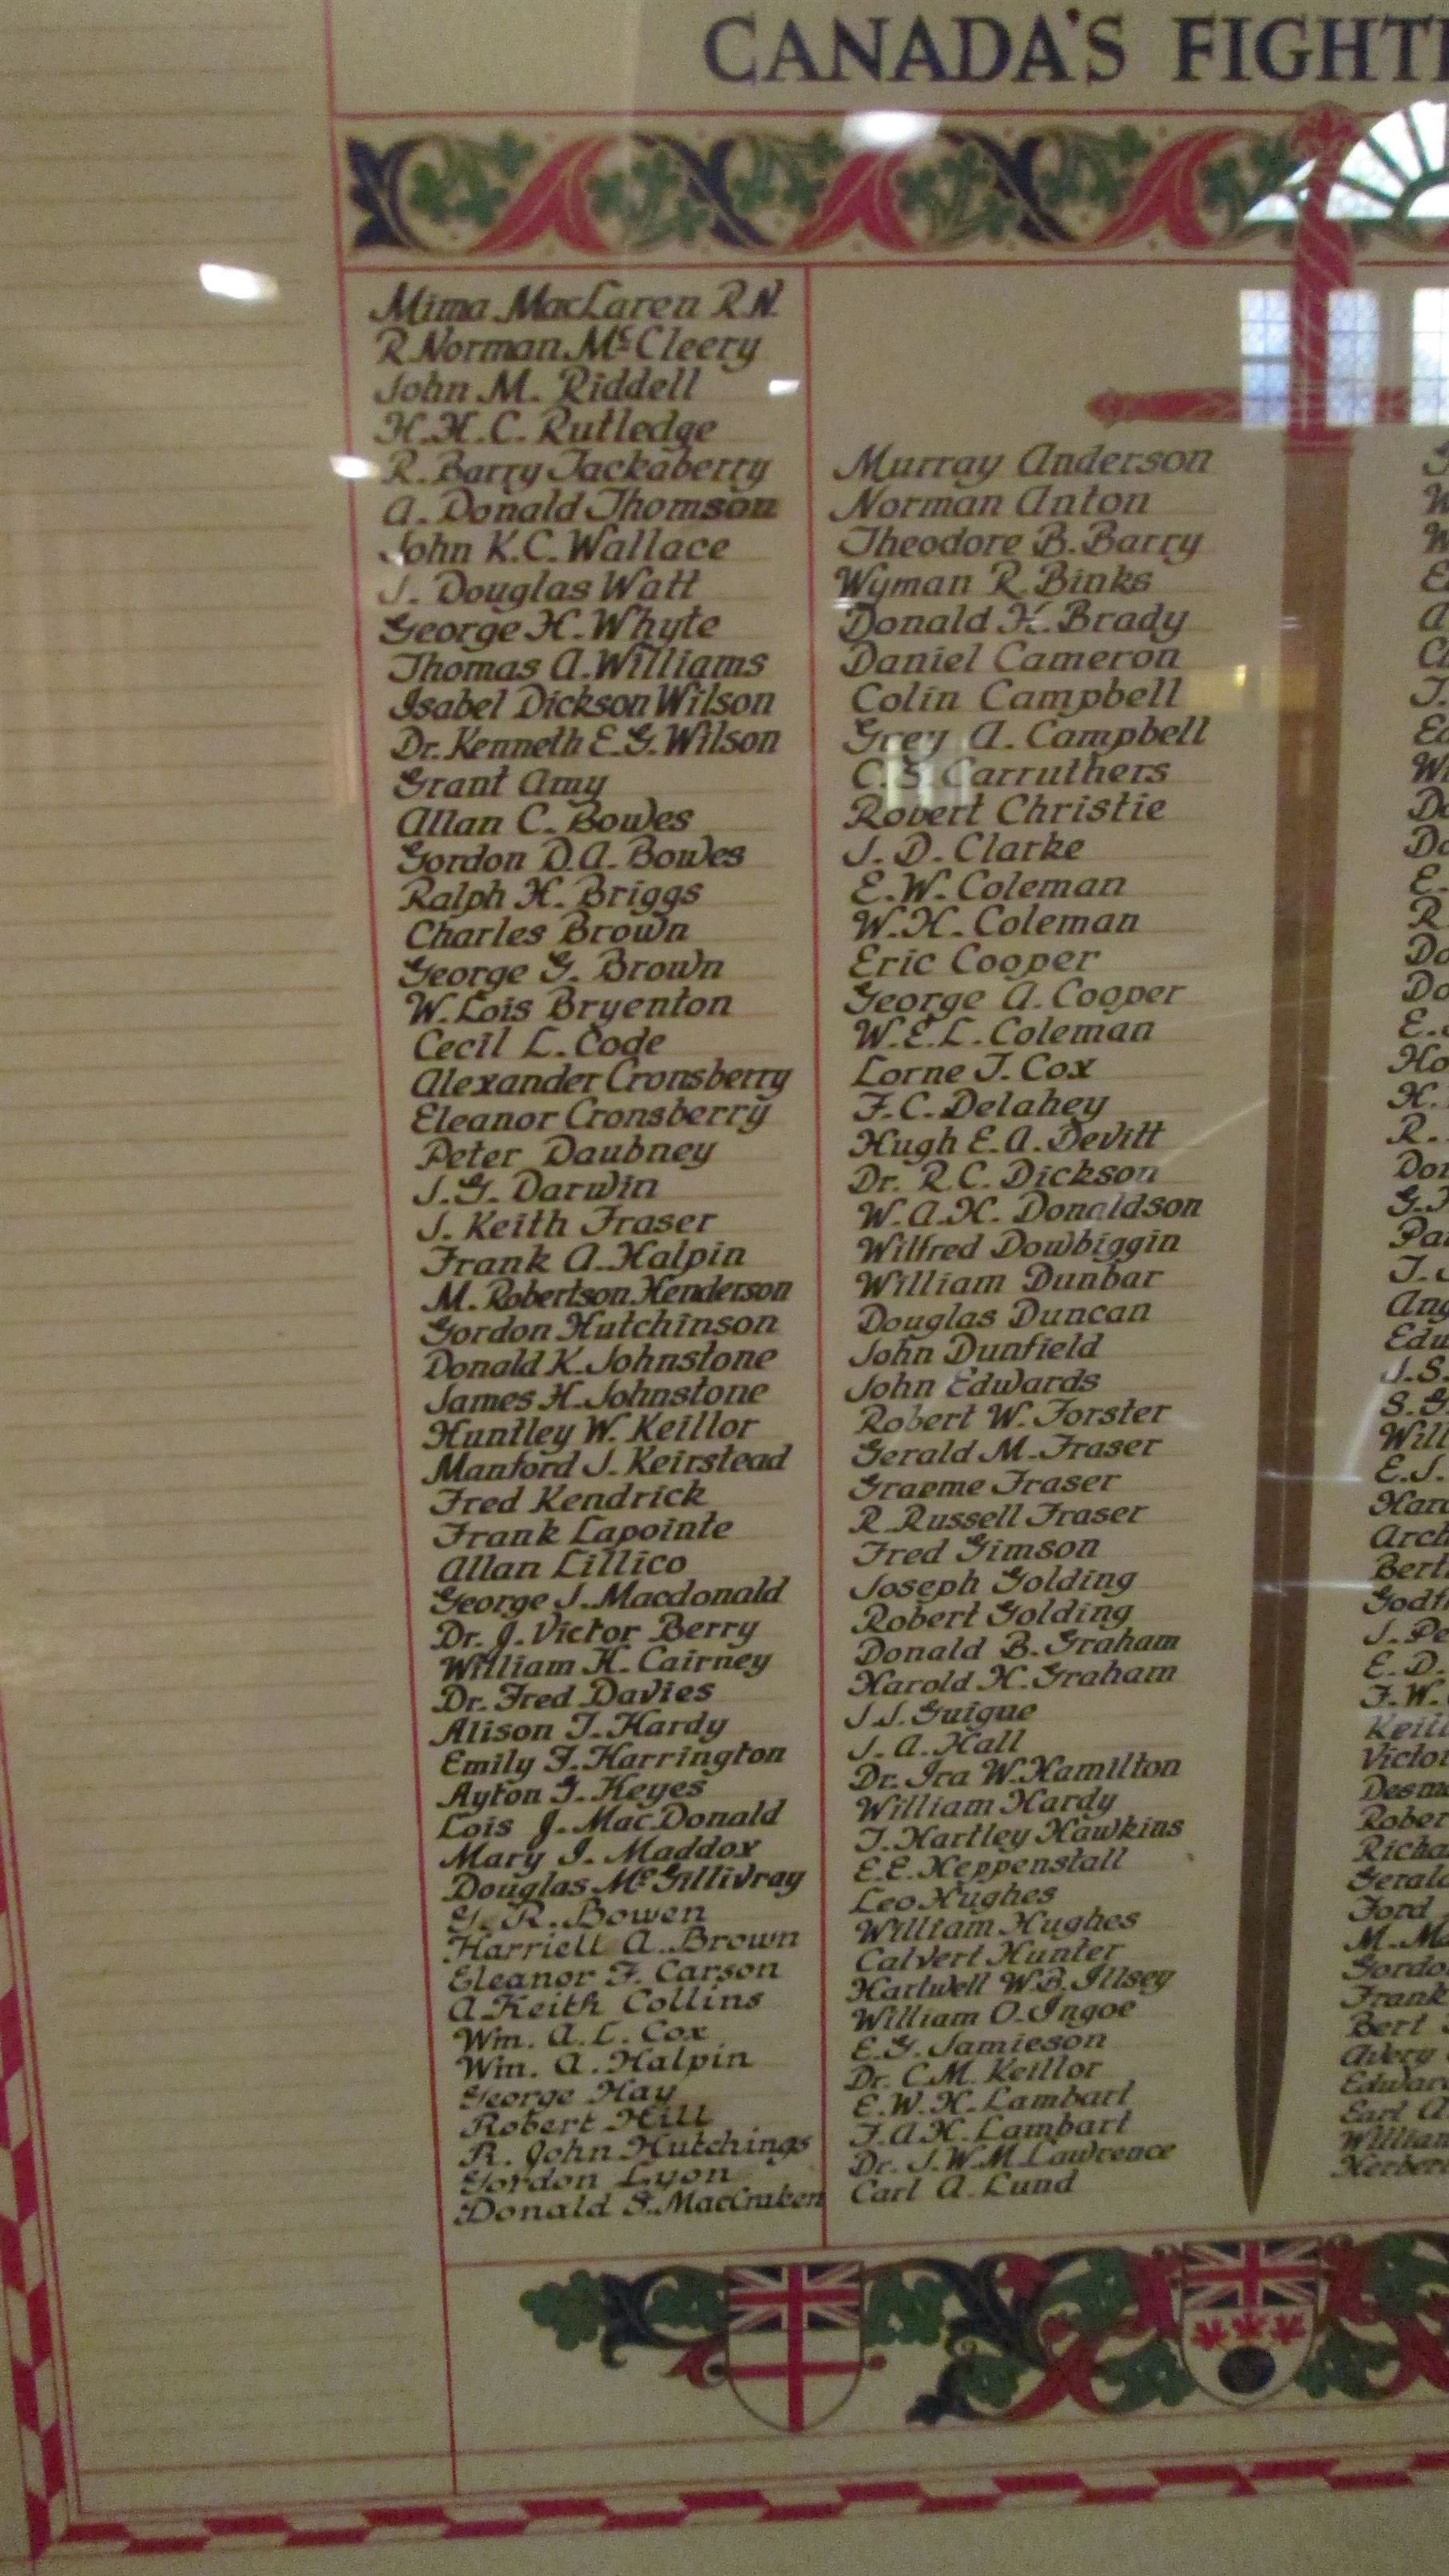 CANADA'S
Mima MacLaren R.N.
R Norman McCleery
John M. Riddell
H.H.C. Rutledge
R. Barry Tackaberry
A. Donald Thomson
John K.C. Wallace
J. Douglas Watt
George H. Whyte
Thomas A. Williams
Isabel Dickson Wilson
Dr. Kenneth E.G. Wilson
Grant Amy
Allan C. Bowes
Gordon D.A. Bowes
Ralph H. Briggs
Charles Brown
George G. Brown
W. Lois Bryenton
Cecil L. Code
Alexander Cronsberry
Eleanor Cronsberry
Peter Daubney
J.G. Darwin
J. Keith Fraser
Frank A. Halpin
M. Robertson Henderson
Gordon Hutchinson
Donald K. Johnstone
James H. Johnstone
Huntley W. Keillor
Manford J. Keirstead
Fred Kendrick
Frank Lapointe
Allan Lillico
George J. Macdonald
Dr. J. Victor Berry
William H. Cairney
Dr. Fred Davies
Alison T. Hardy
Emily F. Harrington
Ayton G. Keyes
Lois J. MacDonald
Mary I. Maddox
Douglas McGillivray
G. R. Bowen
Harriett A. Brown
Eleanor F. Carson
A. Keith Collins
Wm. A.L. Cox
Wm. A. Halpin
George Hay
Robert Hill
R. John Hutchings
Gordon Lyon
Donald S. MacCraken
Murray Anderson
Norman Anton
Theodore B. Barry
Wyman R. Binks
Donald H. Brady
Daniel Cameron
Colin Campbell
Grey A. Campbell
C.S. Carruthers
Robert Christie
J. D. Clarke
E.W. Coleman
W.H. Coleman
Eric Cooper
George A. Cooper
W.E.L. Coleman
Lorne T. Cox
F.C. Delahey
Hugh E.A. Devitt
Dr. R.C. Dickson
W.A.H. Donaldson
Wilfred Dowbiggin
William Dunbar
Douglas Duncan
John Dunfield
John Edwards
Robert W. Forster
Gerald M. Fraser
Graeme Fraser
R. Russell Fraser
Fred Gimson
Joseph Golding
Robert Golding
Donald B. Graham
Harold H. Graham
J.J. Guigue
J. A. Hall
Dr. Ira W. Hamilton
William Hardy
T. Hartley Hawkins
E.E. Heppenstall
Leo Hughes
William Hughes
Calvert Hunter
Hartwell W.B. Illsey
William O. Ingoe
E.G. Jamieson
Dr. C.M. Keillor
E.W.H. Lambart
F.A.H. Lambart
Dr. J.W.M. Lawrence
Carl A. Lund